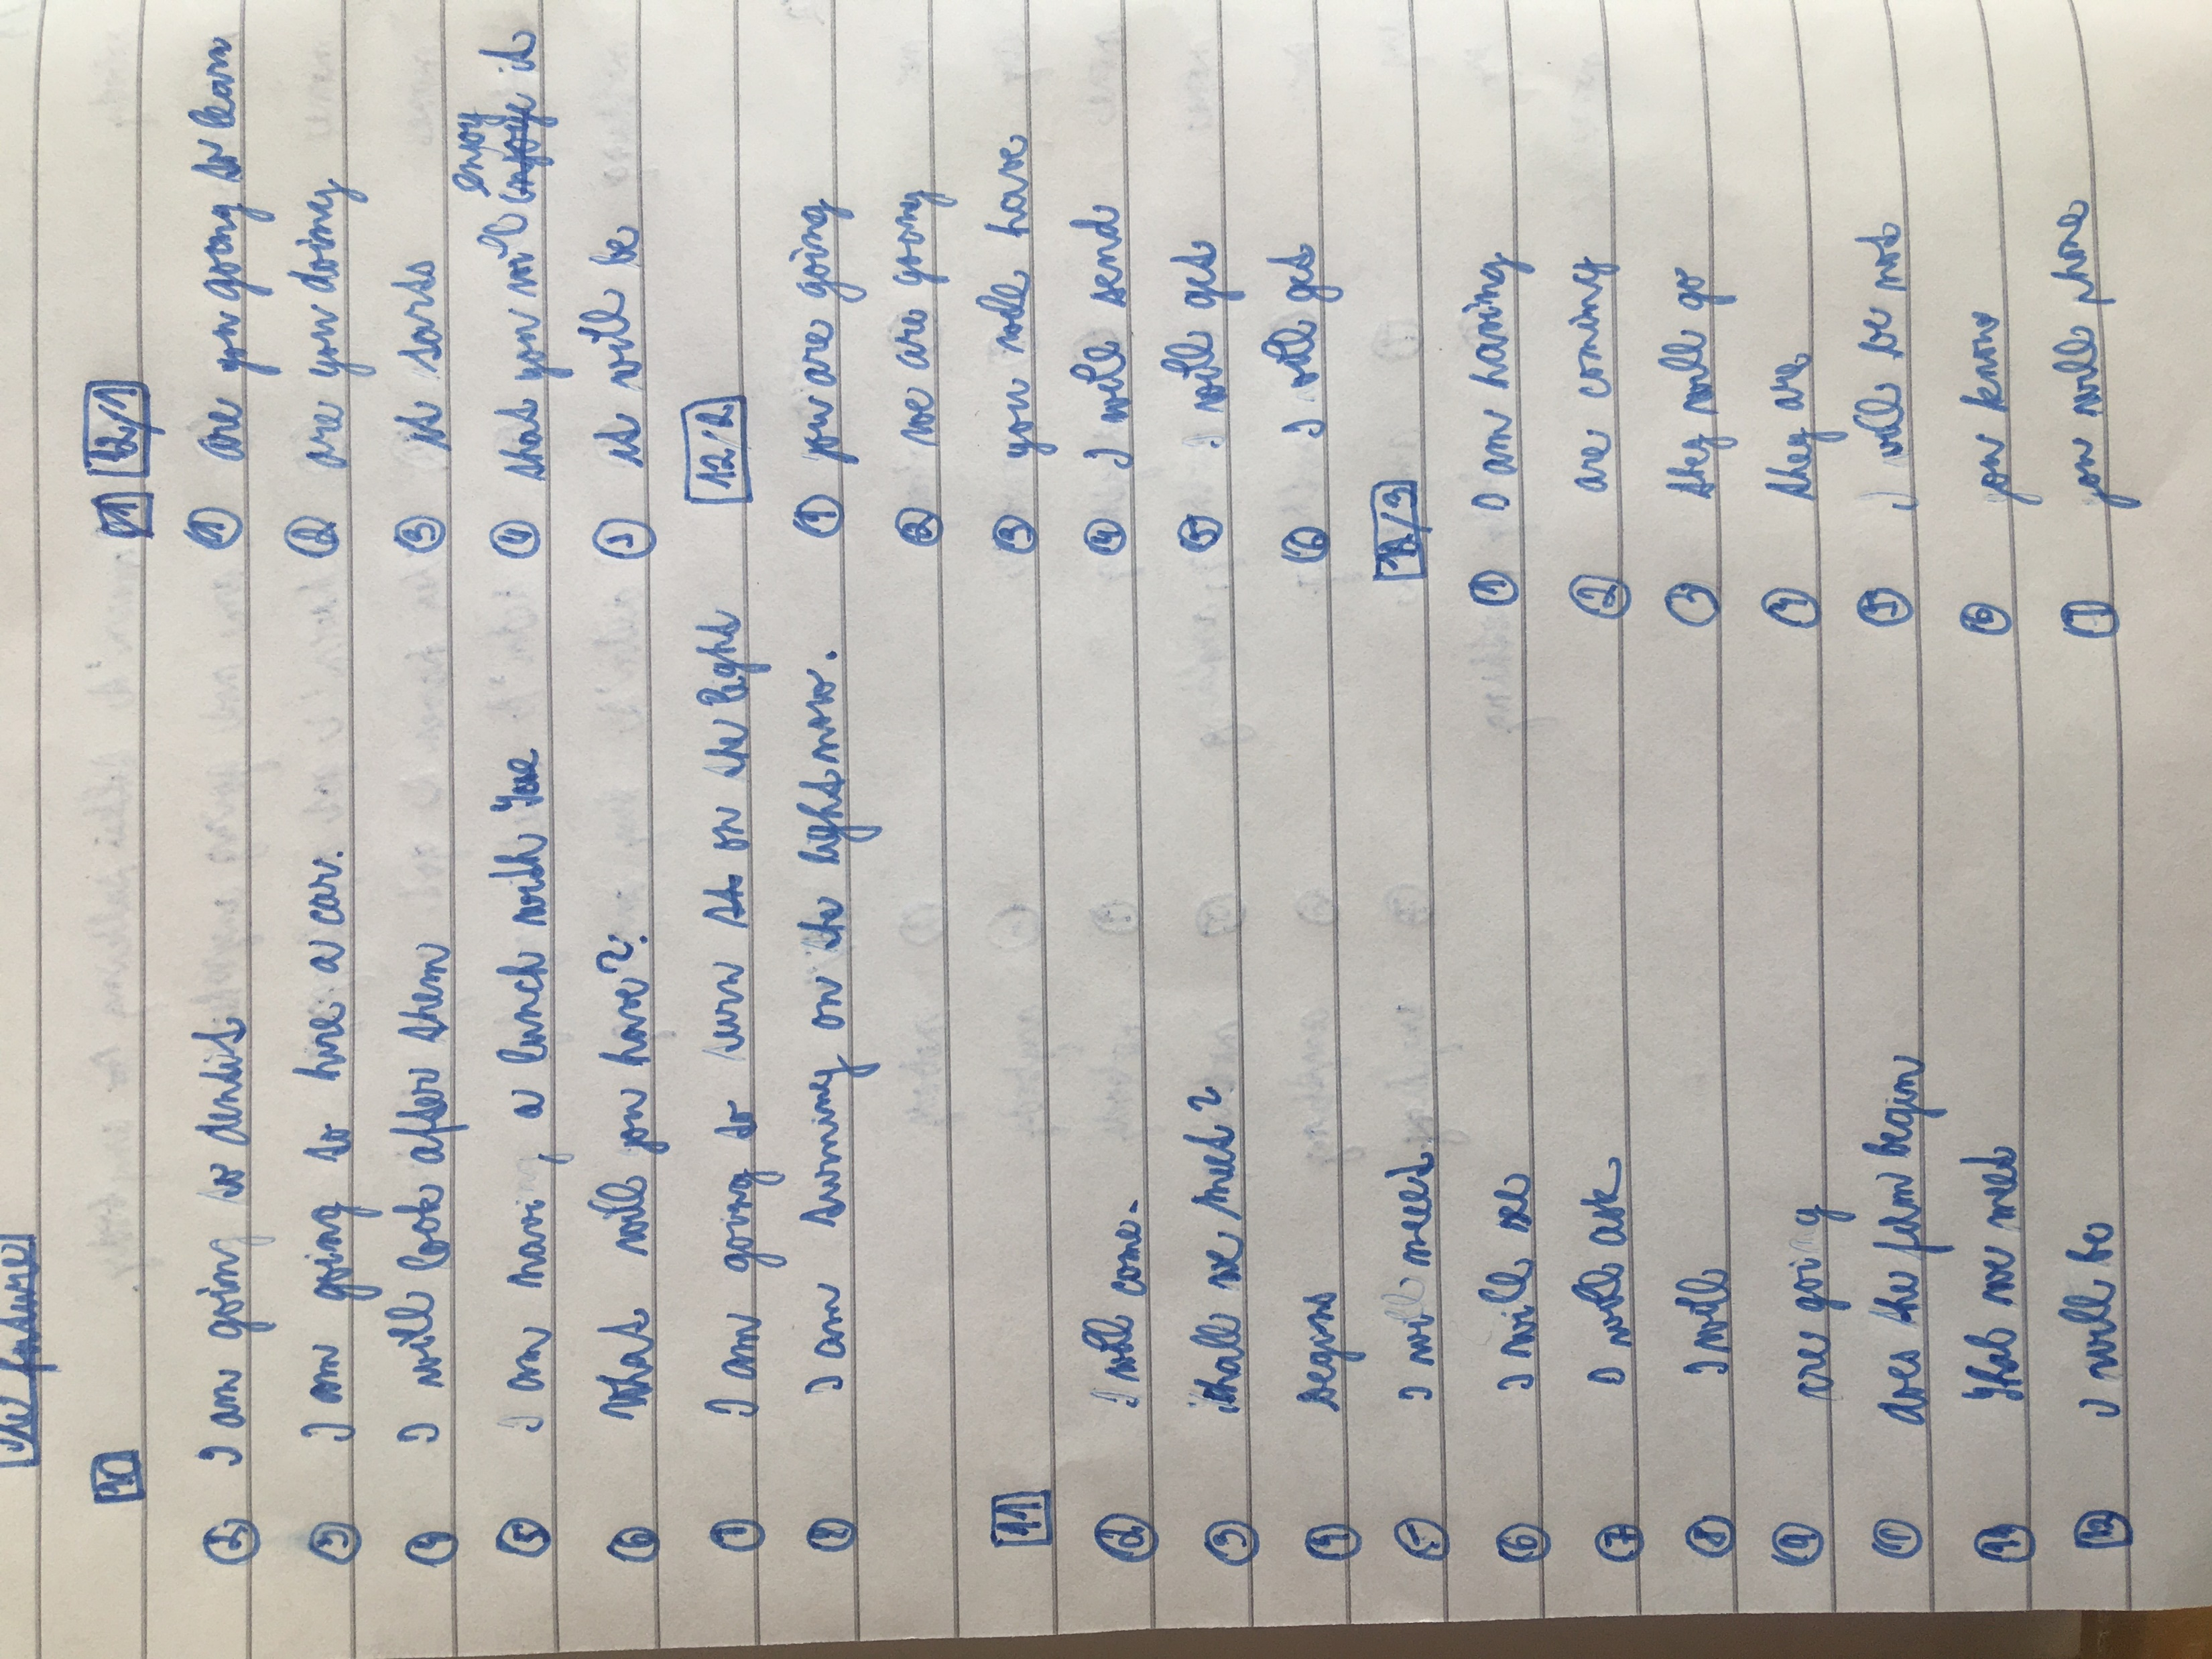 the future
10
② I am going to dentist
③ I am going to hire a car.
④ I will look after them
⑤ I am having a lunch with
⑥ What will you have?
⑦ I am going to turn on the light
⑧ I am turning on the light now.
11
② I will come.
③ shall we meet?
④ begins
⑤ I will meet
⑥ I will see
⑦ I will ask
⑧ I will
⑨ are going
⑩ does the film begin
⑪ Shal we meet
⑫ I will be
12/1
① are you going to learn
② are you doing
③ it starts
④ that you will enjoy it
⑤ it will be
12/2
① you are going
② we are going
③ you will have
④ I will send
⑤ I will get
⑥ I will get
12/3
① I am having
② are coming
③ they will go
④ they are
⑤ I will be not
⑥ you know
⑦ you will phone